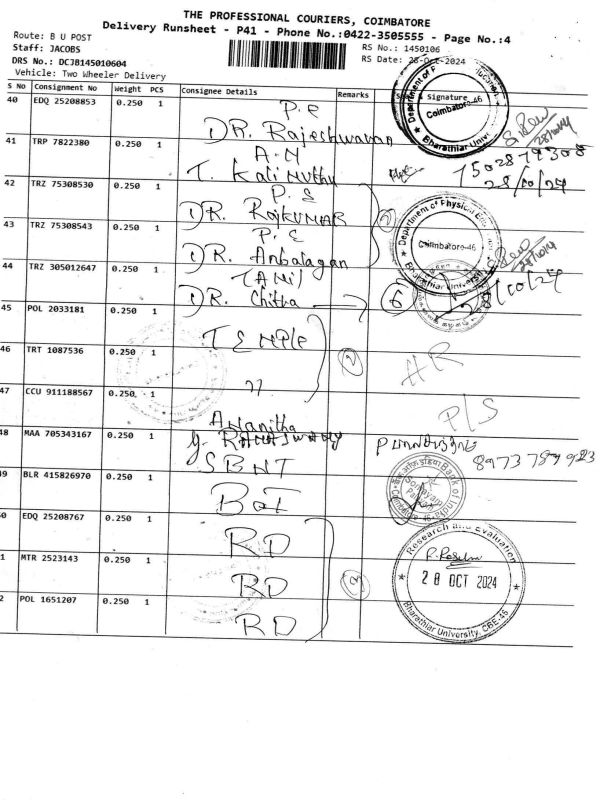 THE PROFESSIONAL COURIERS, COIMBATORE
Delivery Runsheet - P41 - Phone No.:0422-3505555 - Page No.:4
Route: B U POST
RS No.: 1450106
Staff: JACOBS
RS Date: 28-Oct-2024
DRS No.: DCJB145010604
Vehicle: Two Wheeler Delivery
S No Consignment No Weight PCS Consignee Details Remarks Signature
40 EDQ 25208853 0.250 1 P.E
DR. Rajeshwaran
Coimbatore-46
Bharathiar Univ.
28/10/24
41 TRP 7822380 0.250 1 A.N
T. Kali Muthu
7502879308
28/10/24
42 TRZ 75308530 0.250 1 P.S
DR. RAJKUMAR
Department of Physical
Coimbatore-46
Bharathiar University
43 TRZ 75308543 0.250 1 P.E
DR. Anbalagan
44 TRZ 305012647 0.250 1 TAMIL
DR. Chitha
6
28/10/24
45 POL 2033181 0.250 1 TEMPLE
46 TRT 1087536 0.250 1 "
2
AR
47 CCU 911188567 0.250 1 Ananitha
P/S
48 MAA 705343167 0.250 1
SBNT
8973789923
49 BLR 415826970 0.250 1 BOI
Bank of India
0 EDQ 25208767 0.250 1 RD
1 MTR 2523143 0.250 1 RD
3
2 POL 1651207 0.250 1 RD
Research and Evaluation
28 OCT 2024
Bharathiar University, CBE-46